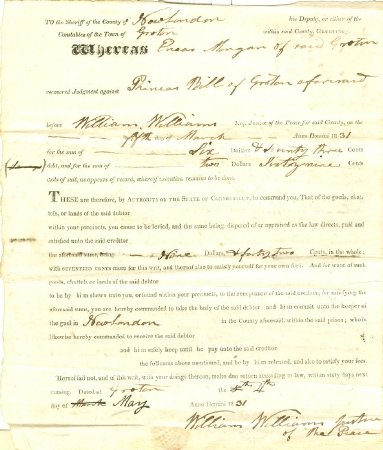 TO the Sheriff of the County of New London his Deputy, or either of the
Constables of the Town of Groton within said County, GREETING:
Whereas Morgan of said Groton
recovered Judgment against Phineas Bill of Groton aforesaid
before William Williams Esq. Justice of the Peace for said County, on the
fifth day of March Anno Domini 1831
for the sum of Six Dollars & Seventy three Cents
debt, and for the sum of two Dollars Sixty nine Cents
costs of suit, as appears of record, whereof execution remains to be done.
THESE are therefore, by AUTHORITY of the STATE of CONNECTICUT, to command you, That of the goods, chat-
tels, or lands of the said debtor
within your precincts, you cause to be levied, and the same being disposed of or appraised as the law directs, paid and
satisfied unto the said creditor
the aforesaid sums, being Nine Dollars & forty two Cents, in the whole;
with SEVENTEEN CENTS more for this writ, and thereof also to satisfy yourself for your own fees. And for want of such
goods, chattels or lands of the said debtor
to be by him shewn unto you, or found within your precincts, to the acceptance of the said creditor, for satisfying the
aforesaid sums, you are hereby commanded to take the body of the said debtor and him commit unto the keeper of
the gaol in New London in the County aforesaid, within the said prison; who is
likewise hereby commanded to receive the said debtor
and him safely keep until he pay unto the said creditor
the full sums above mentioned, and be by him released, and also to satisfy your fees.
Hereof fail not, and of this writ, with your doings thereon, make due return according to law, within sixty days next
coming. Dated at Groton the
day of March May Anno Domini 1831
William Williams Justice
of the Peace